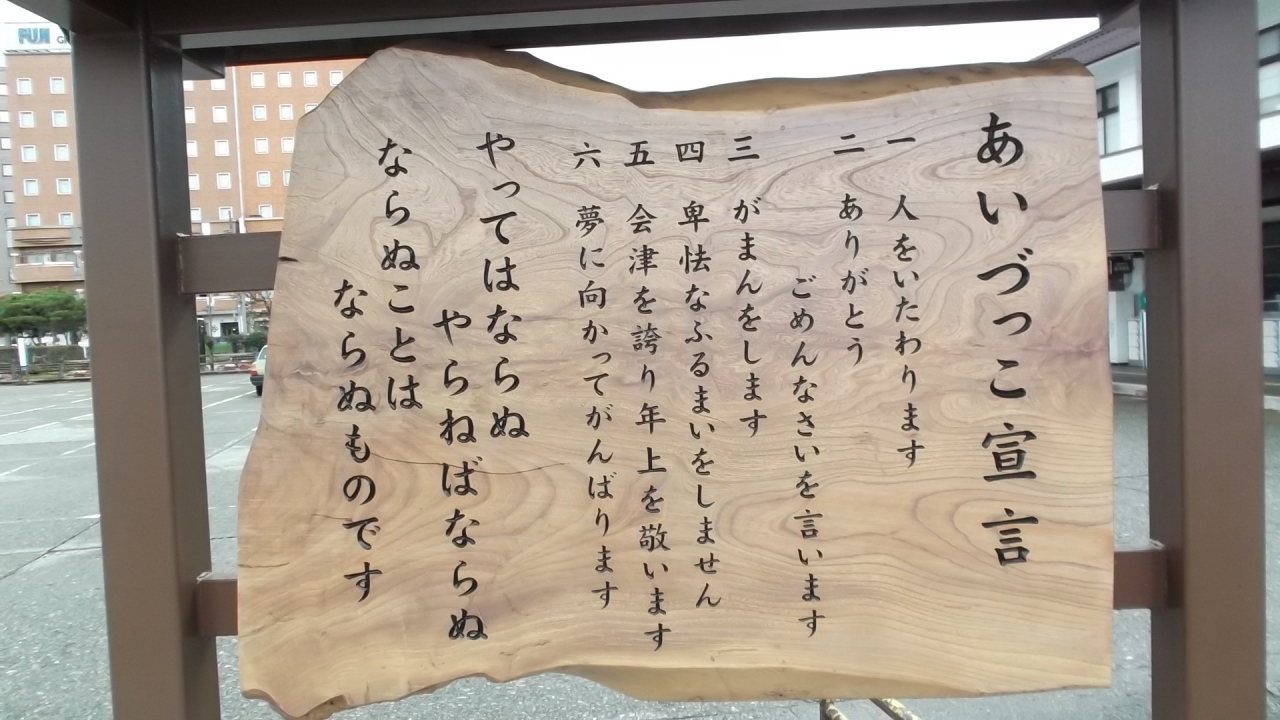 あいづっこ宣言
一 人をいたわります
二 ありがとう
ごめんなさいを言います
三 がまんをします
四 卑怯なふるまいをしません
五 会津を誇り年上を敬います
六 夢に向かってがんばります
やってはならぬ
やらねばならぬ
ならぬことは
ならぬものです
FUJI